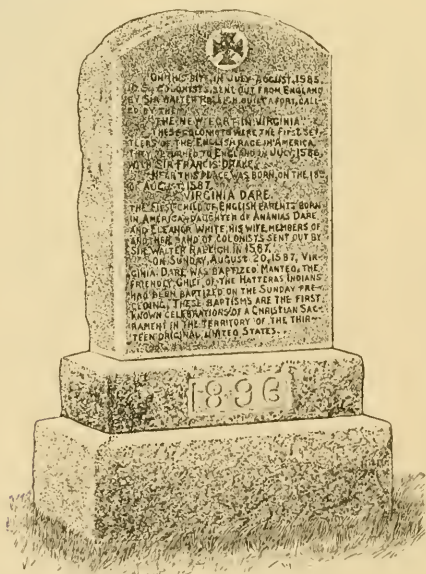 ON THIS SITE, IN JULY-AUGUST, 1585,
COLONISTS, SENT OUT FROM ENGLAND
BY SIR WALTER RALEIGH, BUILT A FORT, CALL-
ED BY THEM
"THE NEW FORT IN VIRGINIA."
THESE COLONISTS WERE THE FIRST SET-
TLERS OF THE ENGLISH RACE IN AMERICA.
THEY RETURNED TO ENGLAND IN JULY, 1586,
WITH SIR FRANCIS DRAKE.
NEAR THIS PLACE WAS BORN, ON THE 18
OF AUGUST, 1587,
VIRGINIA DARE,
THE FIRST CHILD OF ENGLISH PARENTS BORN
IN AMERICA, DAUGHTER OF ANANIAS DARE
AND ELEANOR WHITE, HIS WIFE, MEMBERS OF
ANOTHER BAND OF COLONISTS SENT OUT BY
SIR WALTER RALEIGH IN 1587.
ON SUNDAY, AUGUST 20, 1587, VIR-
GINIA DARE WAS BAPTIZED. MANTEO, THE
FRIENDLY CHIEF OF THE HATTERAS INDIANS
HAD BEEN BAPTIZED ON THE SUNDAY PRE-
CEDING. THESE BAPTISMS ARE THE FIRST
KNOWN CELEBRATIONS OF A CHRISTIAN SAC-
RAMENT IN THE TERRITORY OF THE THIR-
TEEN ORIGINAL UNITED STATES.
1896